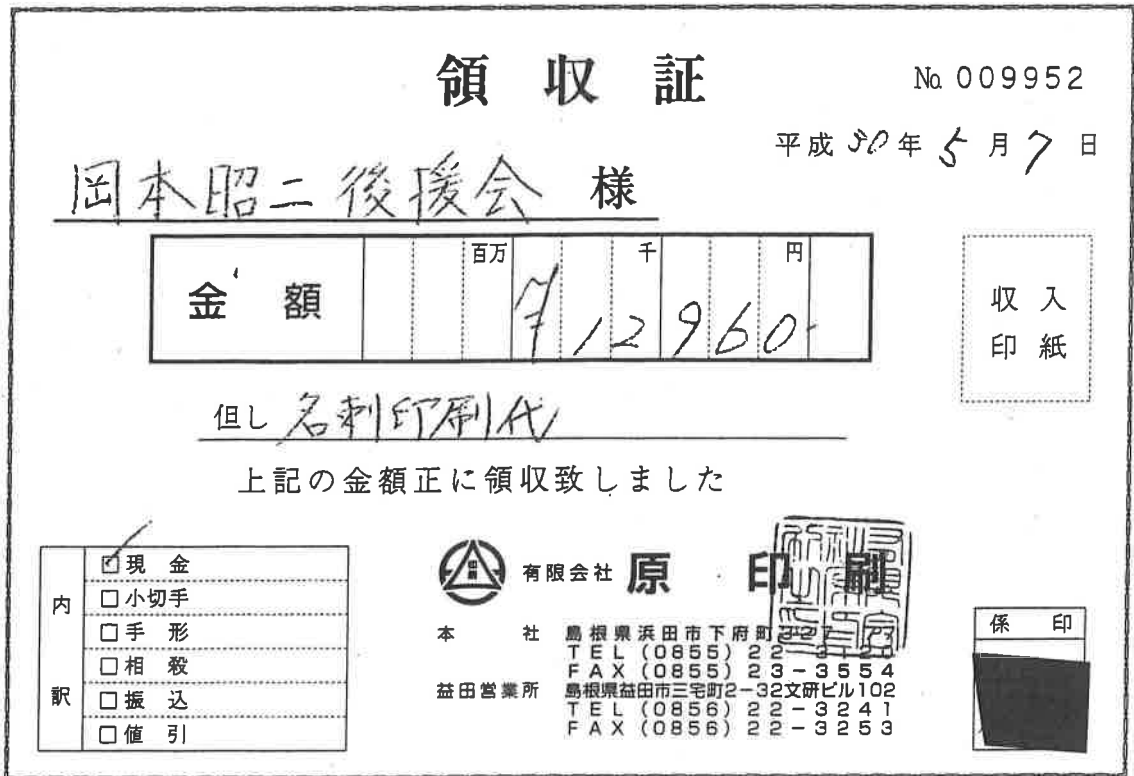 領収証
№ 009952
平成 30 年 5 月 7 日
岡本昭二後援会 様
金額 百万 千 円
¥12960-
収入
印紙
但し 名刺印刷代
上記の金額正に領収致しました
内訳
☑現金
□小切手
□手形
□相殺
□振込
□値引
印刷
有限会社 原印刷
本社 島根県浜田市下府町327
TEL (0855) 22-3120
FAX (0855) 23-3554
益田営業所 島根県益田市三宅町2-32文研ビル102
TEL (0856) 22-3241
FAX (0856) 22-3253
係印